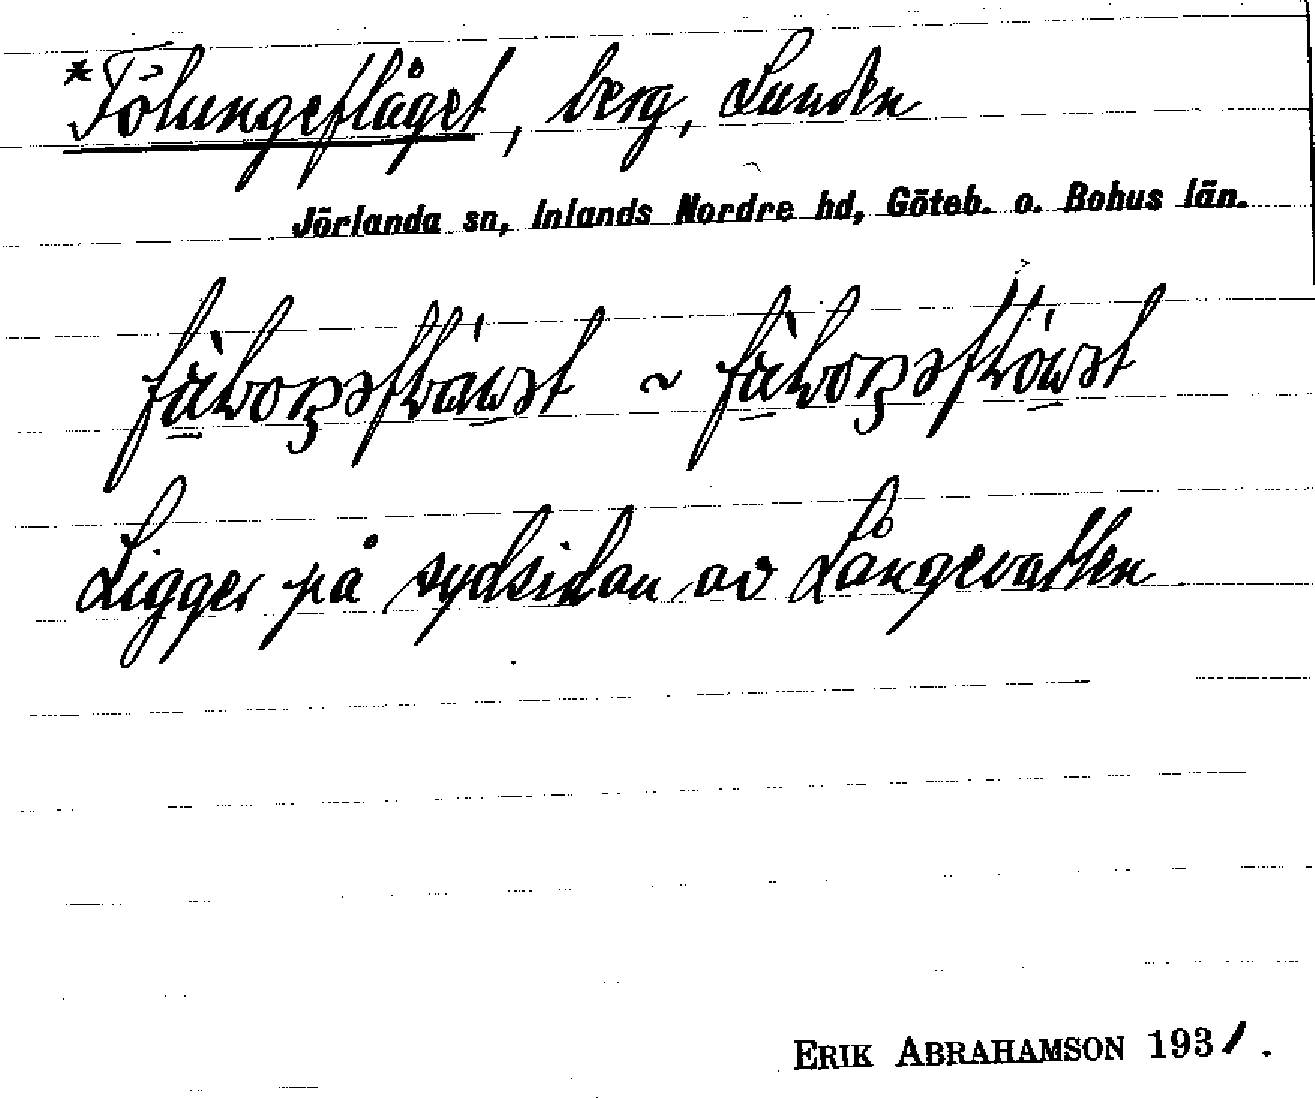 *Fölungeflåget, berg, Lunden
Jörlanda sn, Inlands Nordre hd, Göteb. o. Bohus län.
~
Ligger på sydsidan av Långevatten
ERIK ABRAHAMSON 1931.